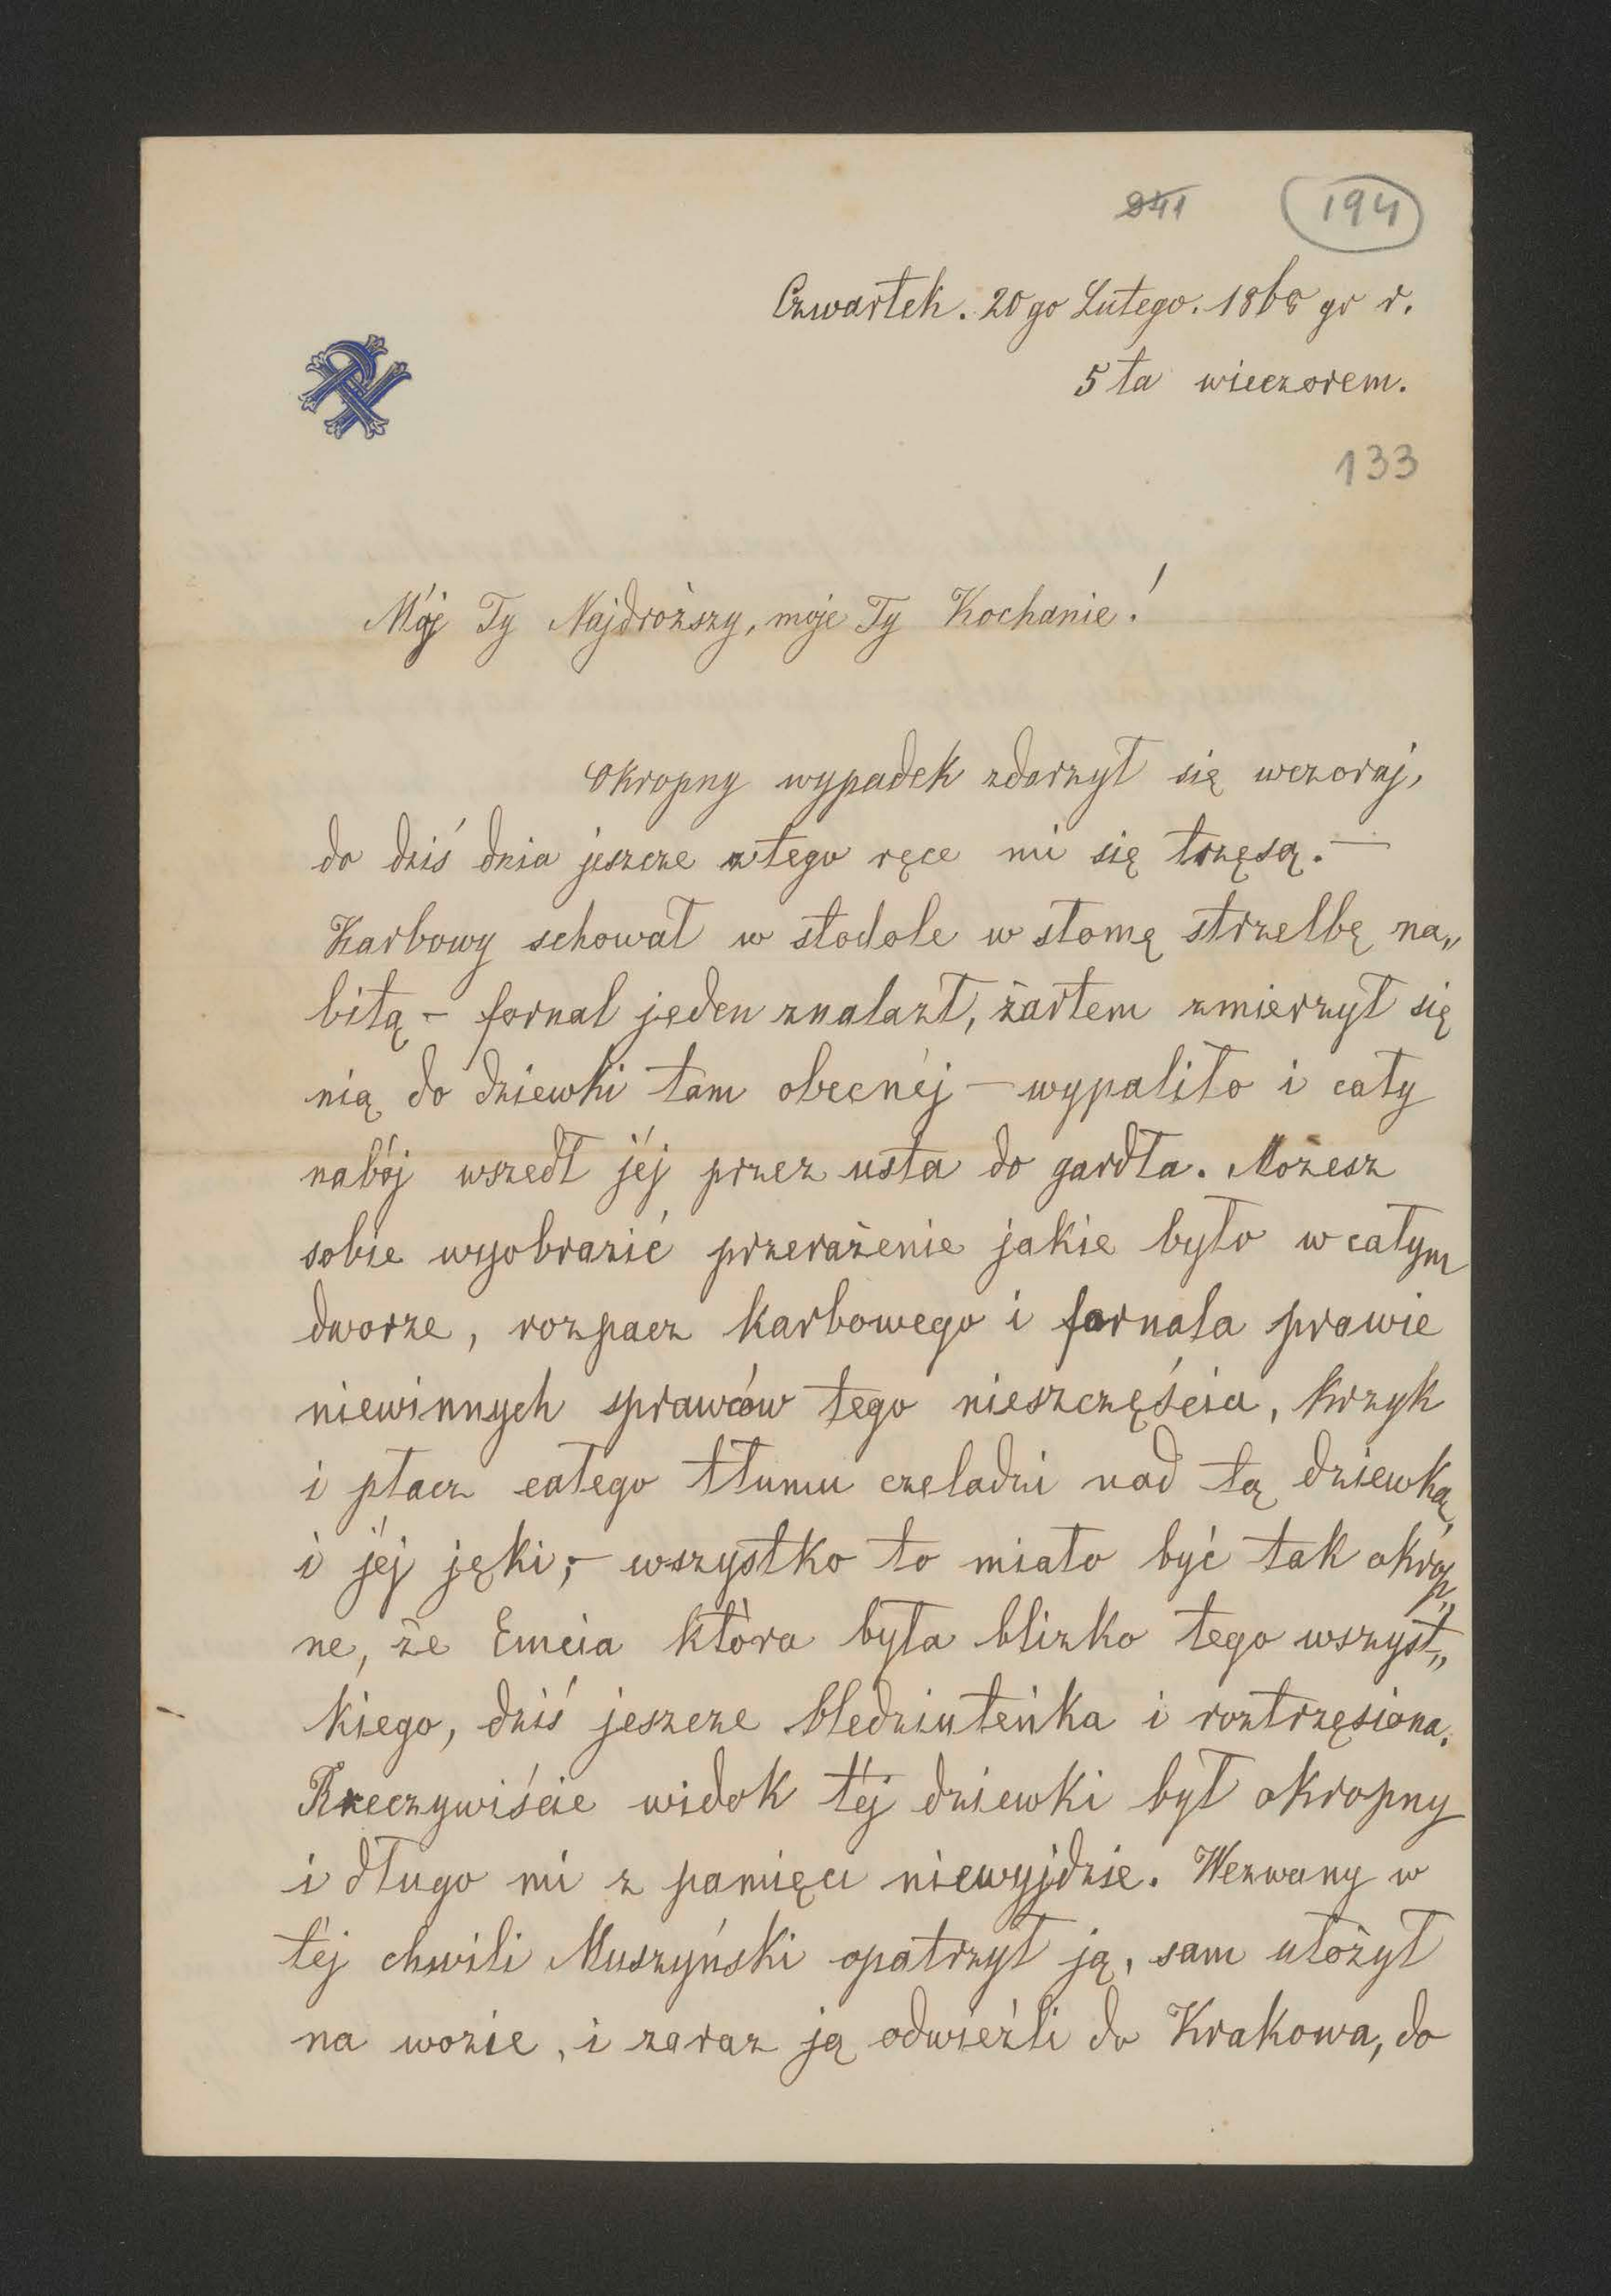 241 194
Czwartek. 20go Lutego. 1868 go r.
5ta wieczorem.
133
Mój Ty Najdroższy, moje Ty Kochanie!
Okropny wypadek zdarzył się wczoraj,
do dziś dnia jeszcze z tego ręce mi się trzęsą. —
Karbowy schował w stodole w słomę strzelbę na„
bitą – fornal jeden znalazł, żartem zmierzył się
nią do dziewki tam obecnéj – wypaliło i cały
nabój wszedł jéj przez usta do gardła. Możesz
sobie wyobrazić przerażenie jakie było w całym
dworze, rozpacz karbowego i fornala prawie
niewinnych sprawców tego nieszczęścia, krzyk
i płacz całego tłumu czeladzi nad tą dziewką,
i jéj jęki; – wszystko to miało być tak okrop„
ne, że Emcia która była blizko tego wszyst„
kiego, dziś jeszcze bledziuteńka i roztrzęsiona.
Rzeczywiście widok téj dziewki był okropny
i długo mi z pamięci niewyjdzie. Wezwany w
téj chwili Muszyński opatrzył ją, sam ułożył
na wozie, i zaraz ją odwieźli do Krakowa, do